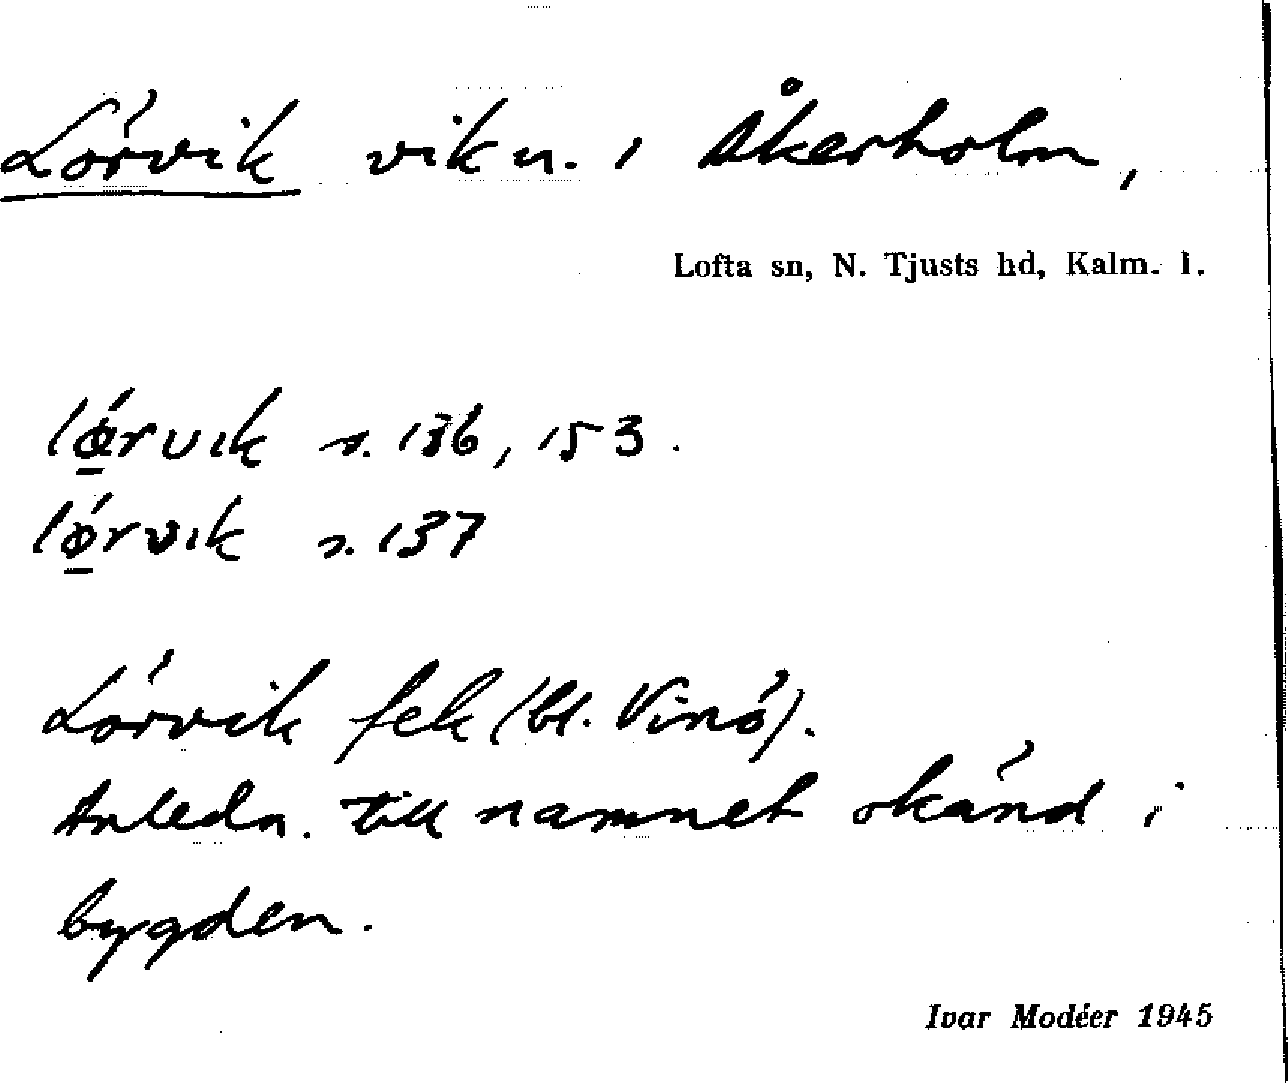 Lörvik vik n. i Åkerholm,
Lofta sn, N. Tjusts hd, Kalm. l.
lǿ̱rvık s. 136, 153.
lǿ̱rvık s. 137
Lörvik fek (bl. Vinö).
Anledn. till namnet okänd i
bygden.
Ivar Modéer 1945